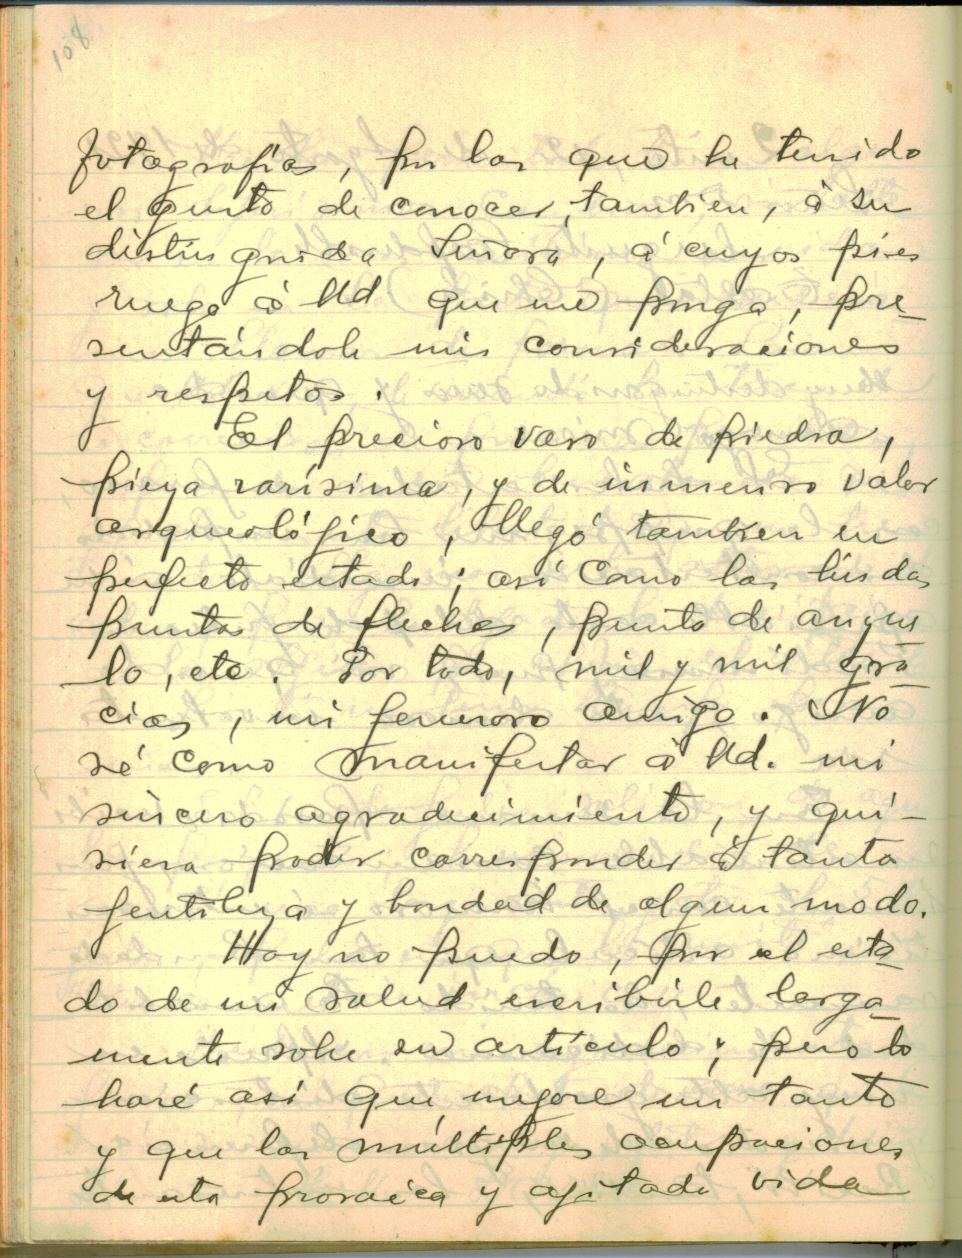 108
fotografías, por las que he tenido
el gusto de conocer, tambien, à su
distinguida Señora, á cuyos pies
ruego à Ud que me ponga, pre-
sentándole mis consideraciones
y respetos.
El precioso vaso de piedra,
pieza rarísima, y de inmenso valor
arqueológico, llegó tambien en
perfecto estado; así como las lindas
puntas de flechas, punta de anzue
lo, etc. Por todo, mil y mil gra-
cias, mi generoso amigo. No
sé como manifestar à Ud. mi
sincero agradecimiento, y qui-
siera poder corresponder à tanta
gentileza y bondad de algun modo.
Hoy no puedo, por el esta-
do de mi salud escribirle larga-
mente sobre su artículo; pero lo
haré así que mejore un tanto
y que las múltiples ocupaciones
de esta prosaica y agitada vida